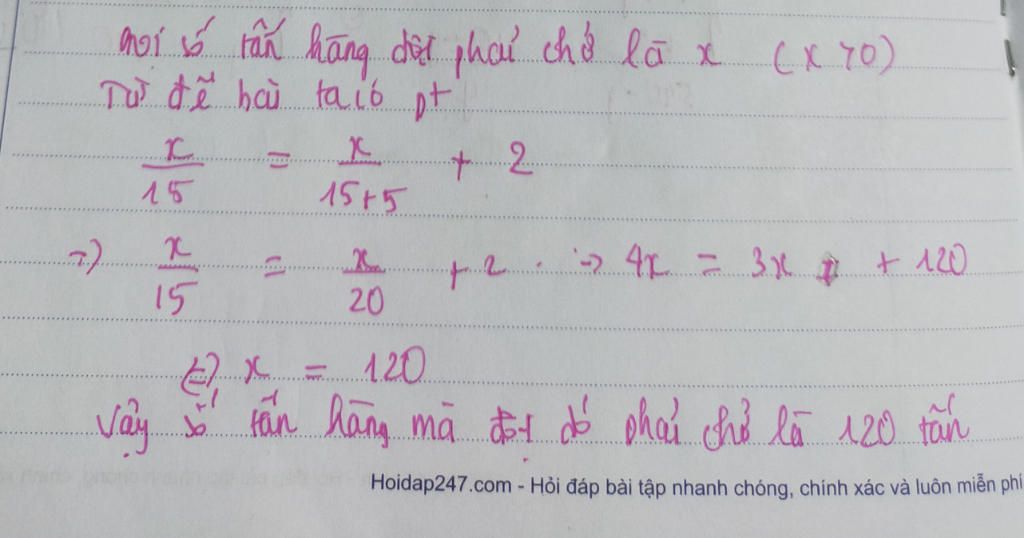 Gọi số tấn hàng đội phải chở là x (x > 0)
Từ đề bài ta có pt
x/15 = x/15+5 + 2
=> x/15 = x/20 + 2 . => 4x = 3x + 120
<=> x = 120
Vậy số tấn hàng mà đội đó phải chở là 120 tấn
Hoidap247.com - Hỏi đáp bài tập nhanh chóng, chính xác và luôn miễn phí